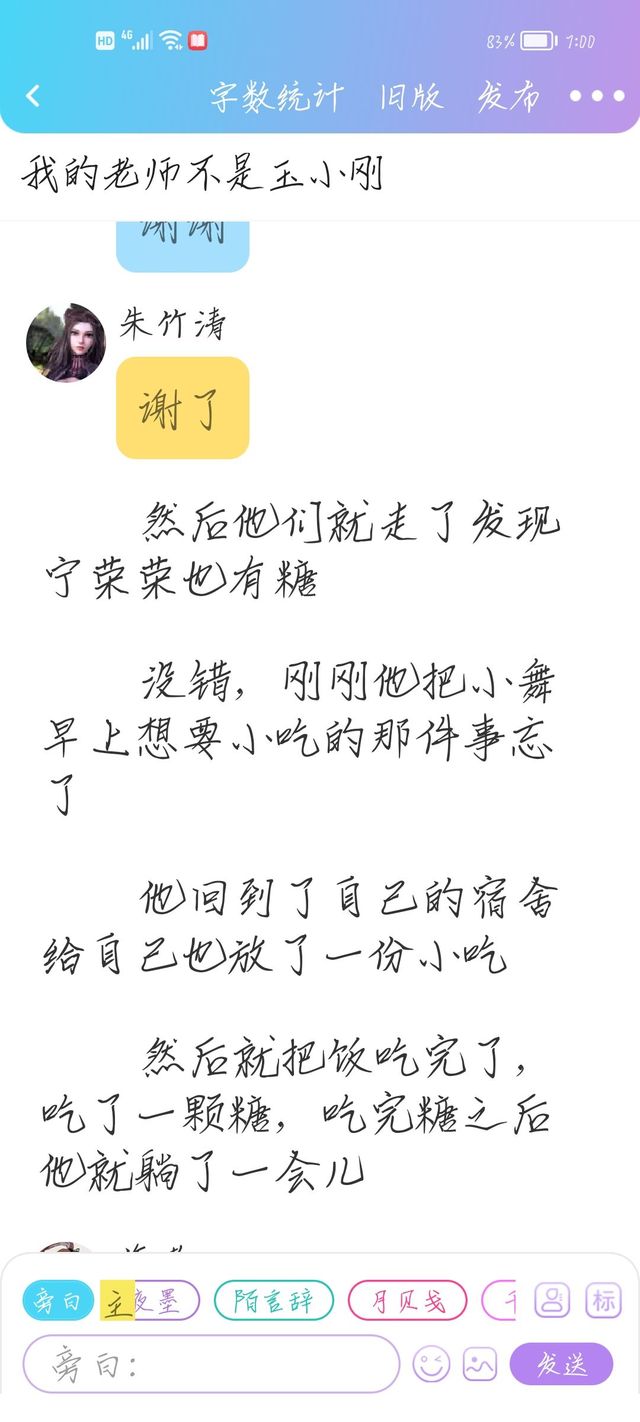 HD 4G 83% 7:00
字数统计 旧版 发布
我的老师不是玉小刚
谢谢
朱竹清
谢了
然后他们就走了发现
宁荣荣也有糖
没错，刚刚他把小舞
早上想要小吃的那件事忘
了
他回到了自己的宿舍
给自己也放了一份小吃
然后就把饭吃完了，
吃了一颗糖，吃完糖之后
他就躺了一会儿
旁白 主 夜墨 陌言辞 月贝戋 标
旁白：
发送